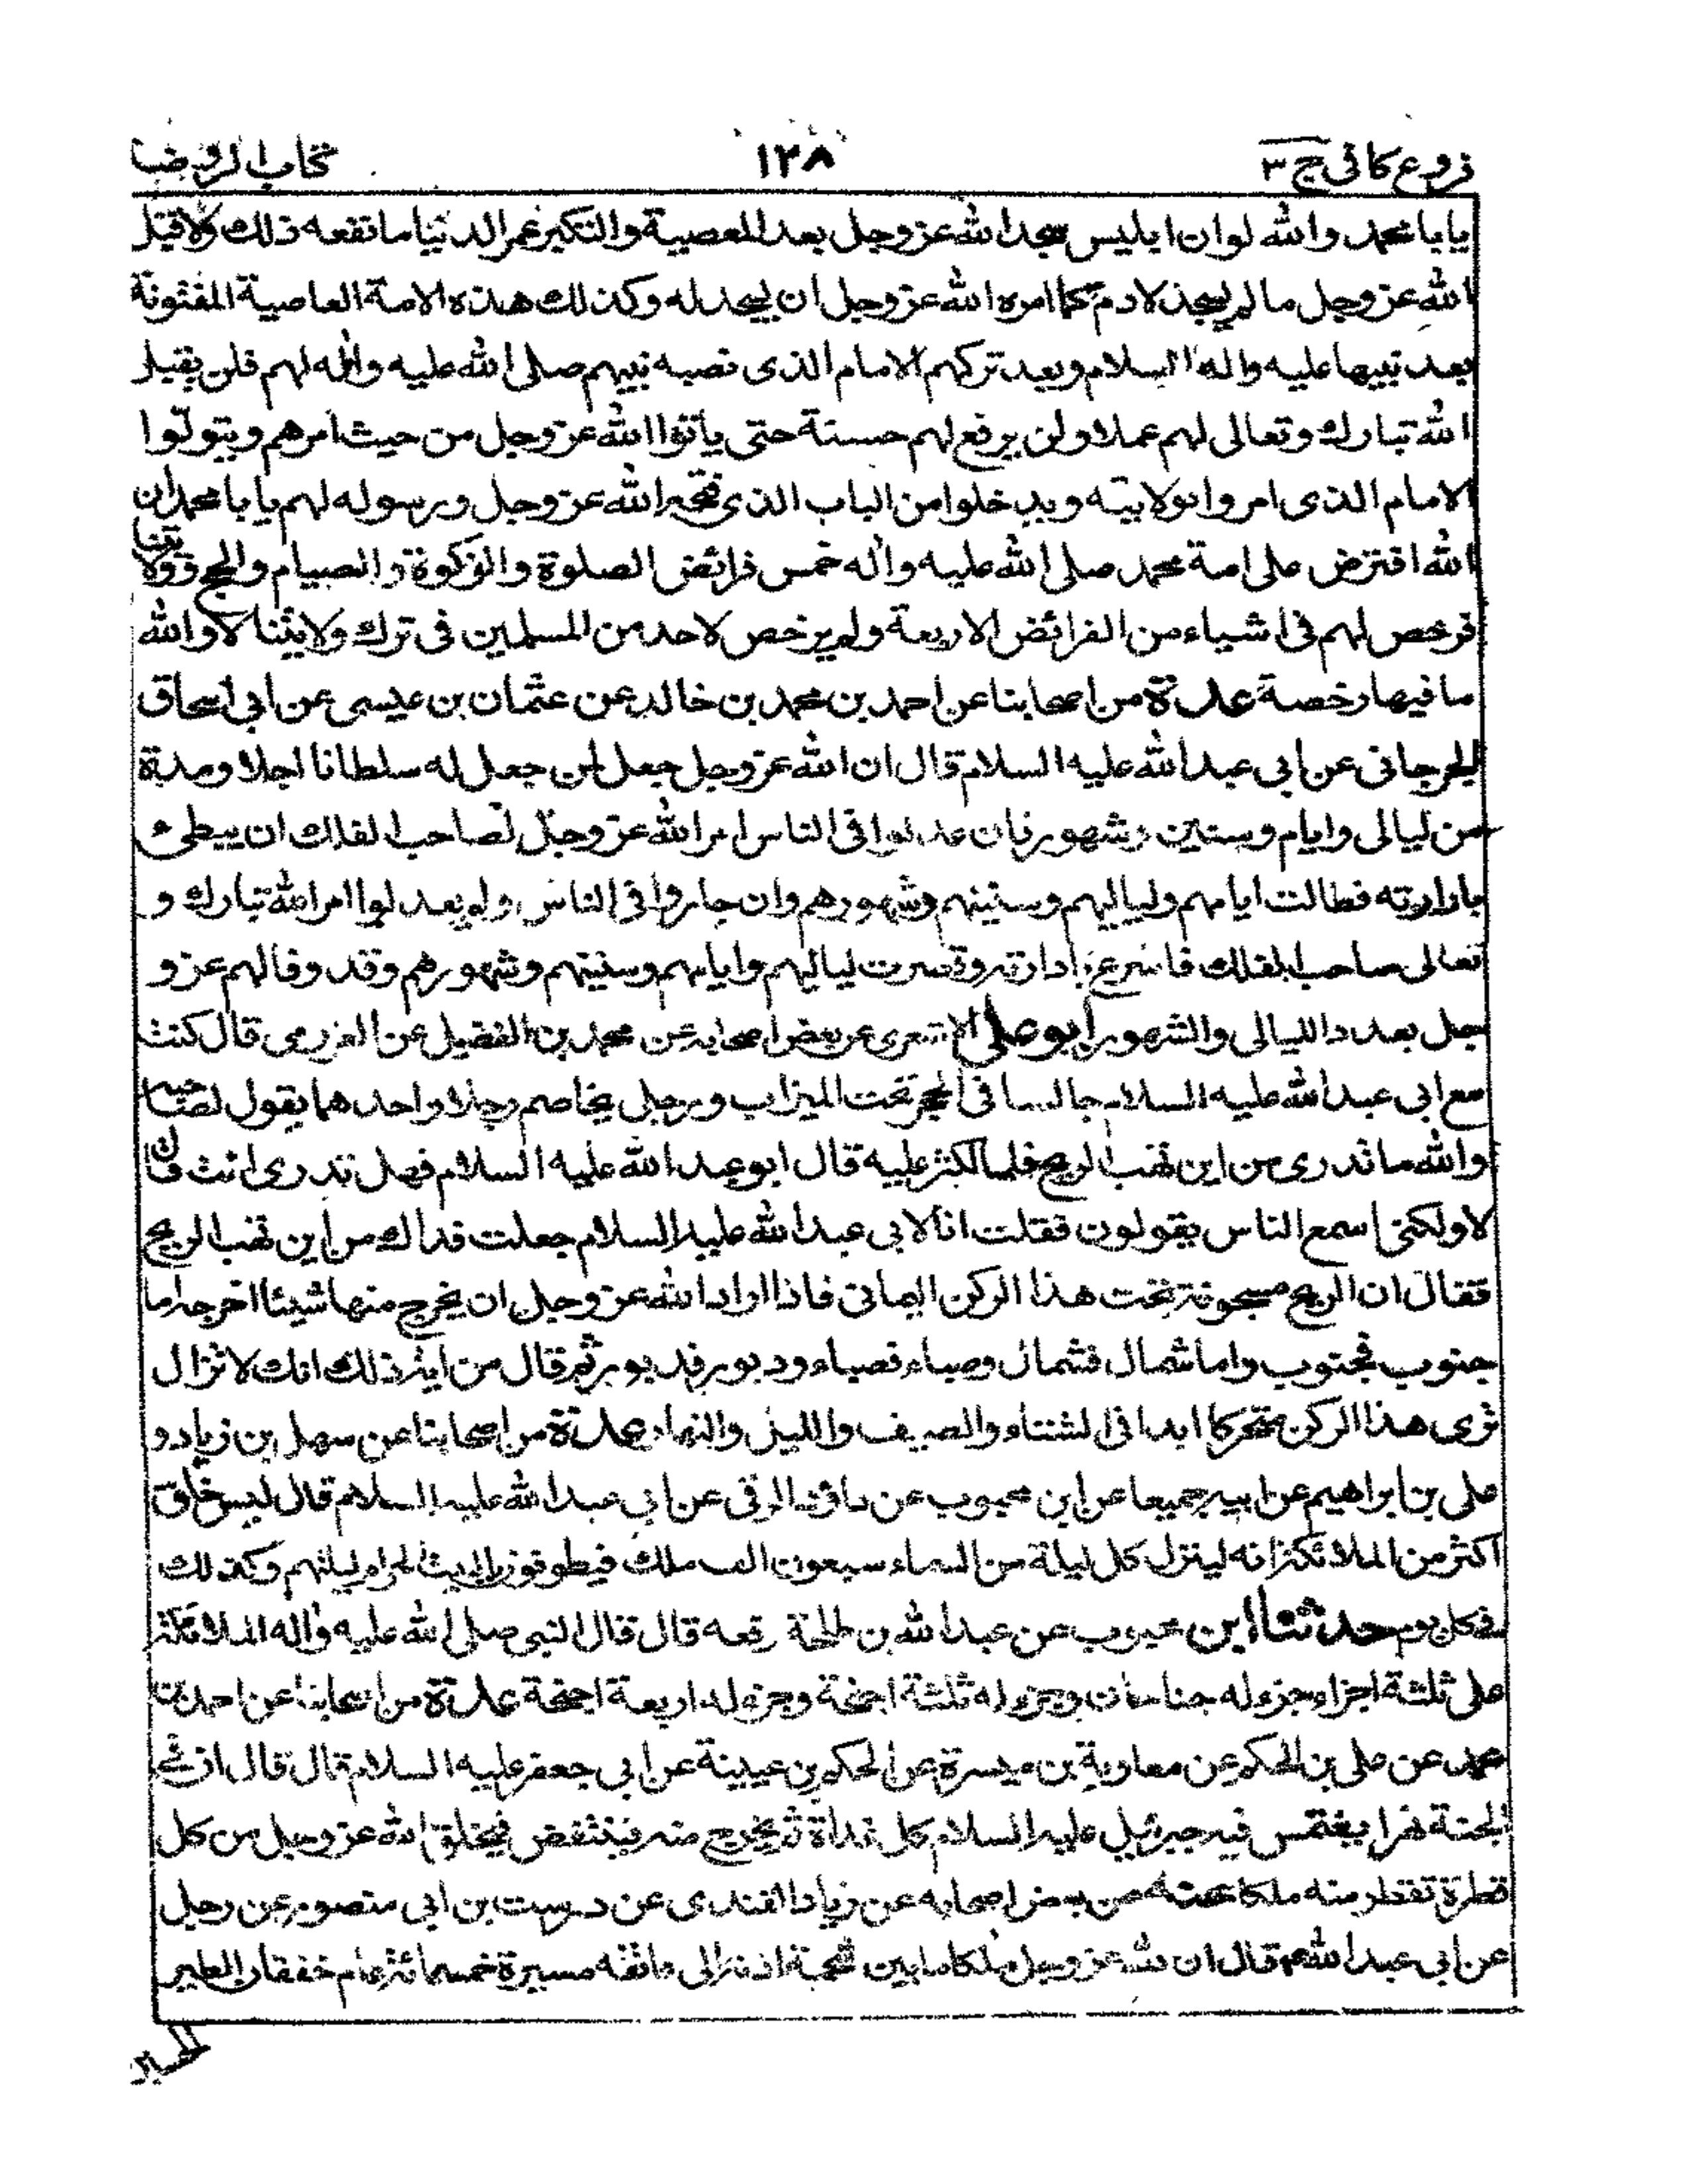 فروع كافى ج ٣ ١٢٨ كتاب الروضة
يابا محمد والله لو ان ابليس سجد الله عزوجل بعد المعصية والتكبر عمر الدنيا ما نفعه ذلك ولا قبل
الله عزوجل ما لم يسجد لادم كما امره الله عزوجل ان يسجد له وكذلك هذه الامة العاصية المفتونة
بعد نبيها عليه واله السلام وبعد تركهم الامام الذى نصبه نبيهم صلى الله عليه واله لهم فلن يقبل
الله تبارك وتعالى لهم عملا ولن يرفع لهم حسنة حتى ياتوا الله عزوجل من حيث امرهم ويتولوا
الامام الذى امروا بولايته ويدخلوا من الباب الذى فتحه الله عزوجل ورسوله لهم يابا محمد ان
الله افترض على امة محمد صلى الله عليه واله خمس فرائض الصلوة والزكوة والصيام والحج وولايتنا
فرخص لهم فى اشياء من الفرائض الاربعة ولم يرخص لاحد من المسلمين فى ترك ولايتنا لا والله
ما فيها رخصة عدة من اصحابنا عن احمد بن محمد بن خالد عن عثمان بن عيسى عن ابى اسحاق
الجرجانى عن ابى عبدالله عليه السلام قال ان الله عزوجل جعل لمن جعل له سلطانا اجلا ومدة
من ليالى وايام وسنين وشهور فان عدلوا فى الناس امر الله عزوجل لصاحب الفلك ان يبطىء
بادارته فطالت ايامهم ولياليهم وسنينهم وشهورهم وان جاروا فى الناس ولم يعدلوا امر الله تبارك و
تعالى صاحب الفلك فاسرع بادارته وقصرت لياليهم وايامهم وسنينهم وشهورهم وقد وفا لهم عز و
جل بعدد الليالى والشهور ابو على الاشعرى عن بعض اصحابه عن محمد بن الفضيل عن العزرمى قال كنت
مع ابى عبدالله عليه السلام جالسا فى الحجر تحت الميزاب ورجل يخاصم رجلا واحدهما يقول لصاحبه
والله ما تدرى من اين تهب الريح فلما اكثر عليه قال ابو عبدالله عليه السلام فهل تدرى انت قال
لا ولكنى اسمع الناس يقولون فقلت انا لابى عبدالله عليه السلام جعلت فداك من اين تهب الريح
فقال ان الريح مسجونة تحت هذا الركن اليمانى فاذا اراد الله عزوجل ان يخرج منها شيئا اخرجه اما
جنوب فجنوب واما شمال فشمال وصباء فصباء ودبور فدبور ثم قال من اية ذلك انك لا تزال
ترى هذا الركن متحركا ابدا فى الشتاء والصيف والليل والنهار عدة من اصحابنا عن سهل بن زياد و
على بن ابراهيم عن ابيه جميعا عن ابن محبوب عن داود الرقى عن ابى عبدالله عليه السلام قال ليس خلق
اكثر من الملائكة انه لينزل كل ليلة من السماء سبعون الف ملك فيطوفون بالبيت الحرام ليلتهم وكذلك
فى كل يوم حدثنا ابن محبوب عن عبدالله بن طلحة رفعه قال قال النبى صلى الله عليه واله الملائكة
على ثلثة اجزاء جزء له جناحان وجزء له ثلثة اجنحة وجزء له اربعة اجنحة عدة من اصحابنا عن احمد بن
محمد عن على بن الحكم عن معاوية بن ميسرة عن الحكم بن عيينة عن ابى جعفر عليه السلام قال قال ان فى
الجنة نهرا يغتمس فيه جبرئيل عليه السلام كل غداة ثم يخرج منه فينتفض فيخلق الله عزوجل من كل
قطرة تقطر منه ملكا عنه عن بعض اصحابه عن زياد القندى عن درست بن ابى منصور عن رجل
عن ابى عبدالله ع قال ان لله عزوجل ملكا ما بين شحمة اذنه الى عاتقه مسيرة خمسمائة عام خفقان الطير